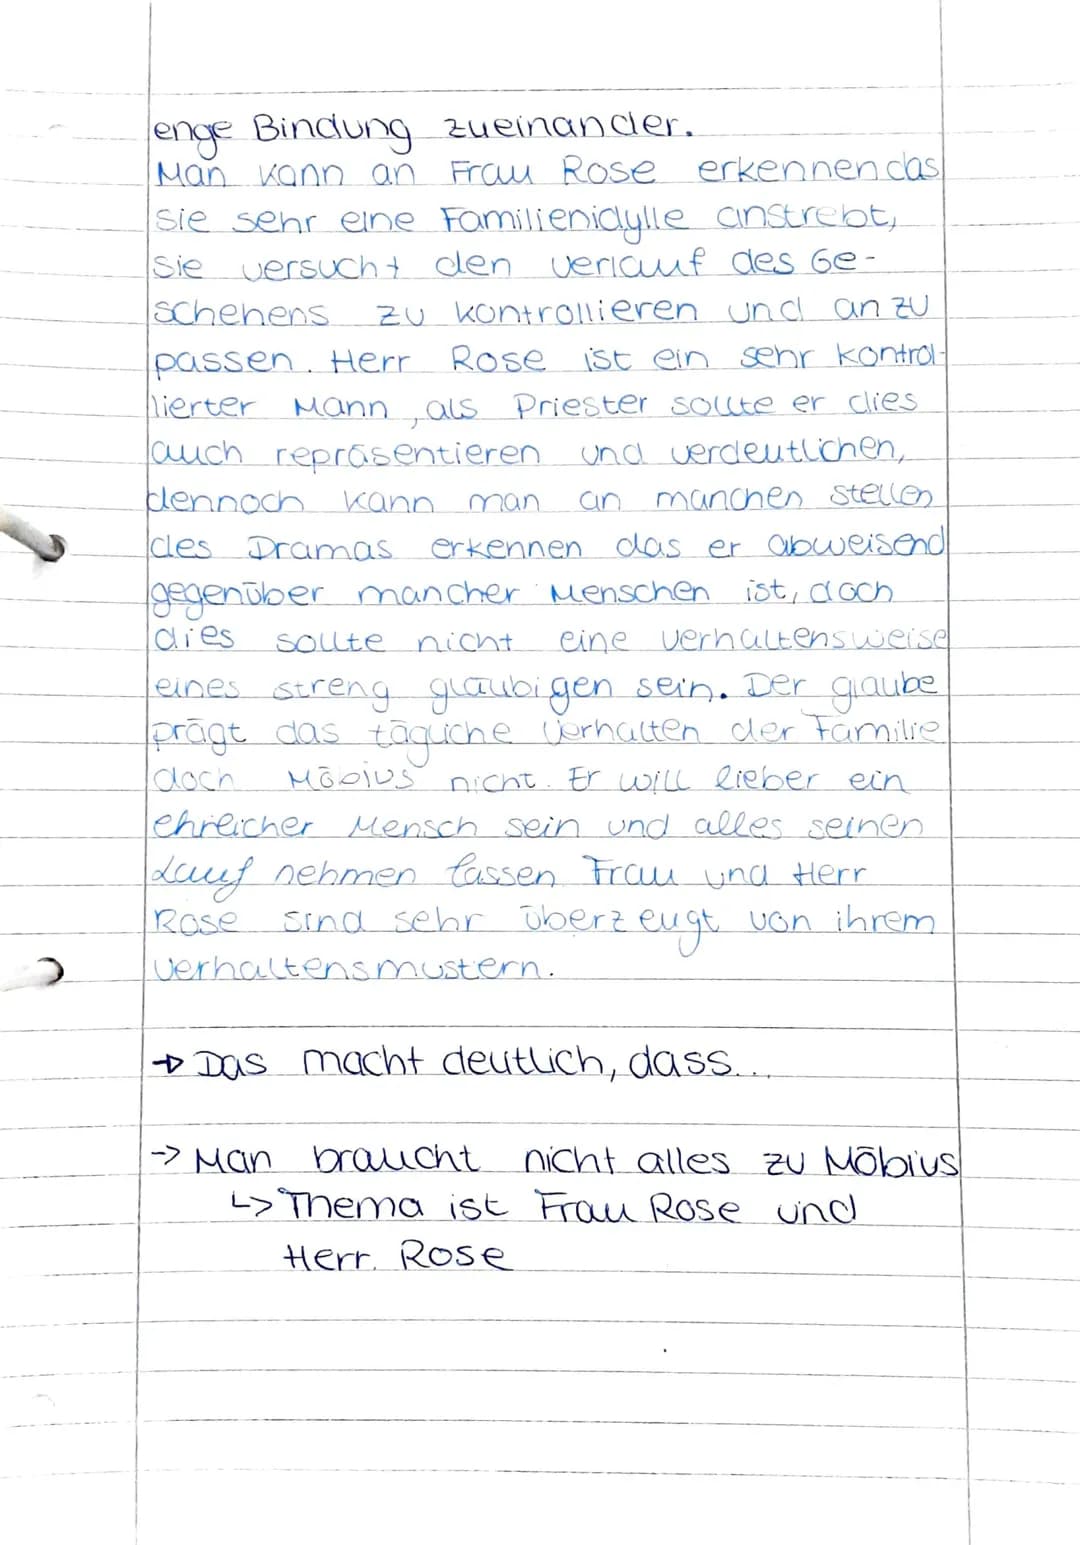 enge Bindung zueinander.
Man kann an Frau Rose erkennen das
sie sehr eine Familienidylle anstrebt,
sie versucht den verlauf des Ge-
schehens zu kontrollieren und an zu
passen. Herr Rose ist ein sehr kontrol-
lierter Mann, als Priester sollte er dies
auch repräsentieren und verdeutlichen,
dennoch kann man an manchen stellen
des Dramas erkennen das er abweisend
gegenüber mancher Menschen ist, doch
dies sollte nicht eine verhaltensweise
eines streng gläubigen sein. Der glaube
prägt das tägliche Verhalten der Familie
doch Möbius nicht. Er will lieber ein
ehrlicher Mensch sein und alles seinen
Lauf nehmen lassen. Frau und Herr
Rose sind sehr überzeugt von ihrem
verhaltensmustern.
→ Das macht deutlich, dass...
→ Man braucht nicht alles zu Möbius
↳ Thema ist Frau Rose und
Herr. Rose